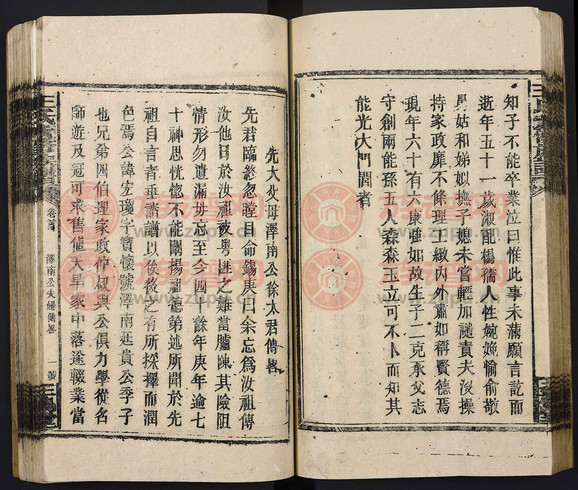 知子不能卒業泣曰惟此事未滿願言訖而
逝年五十一歲淑配楊孺人性婉婉愉愉敬
姑和娣姒撫子媳未嘗輕加譴責夫沒操
持家政靡不條理上緻內外肅如稱賢德焉
現年六十有六康健如故生子二克承父志
守創兩能孫五人森森玉立可不卜而知其
能光大門閭者
先大父母澤南公徐太君傳畧
先君臨終忽瞠目命錫庚曰余忘為汝祖傳
汝他日於汝祖被粵匪之難當臚陳其險阻
情形勿遺漏毋忘至今四十餘年庚年逾七
十神思恍惚不能闡揚祖德第述所聞於先
祖自言者垂諸譜以俟後之有所採擇而潤
色焉公諱宏瓊字寶懷號澤南廷貴公季子
也兄弟四伯理家政仲叔與公俱力學從名
師遊及冠可來售值大旱家中落遂輟業當
卷首
澤南公大母傳畧
一號